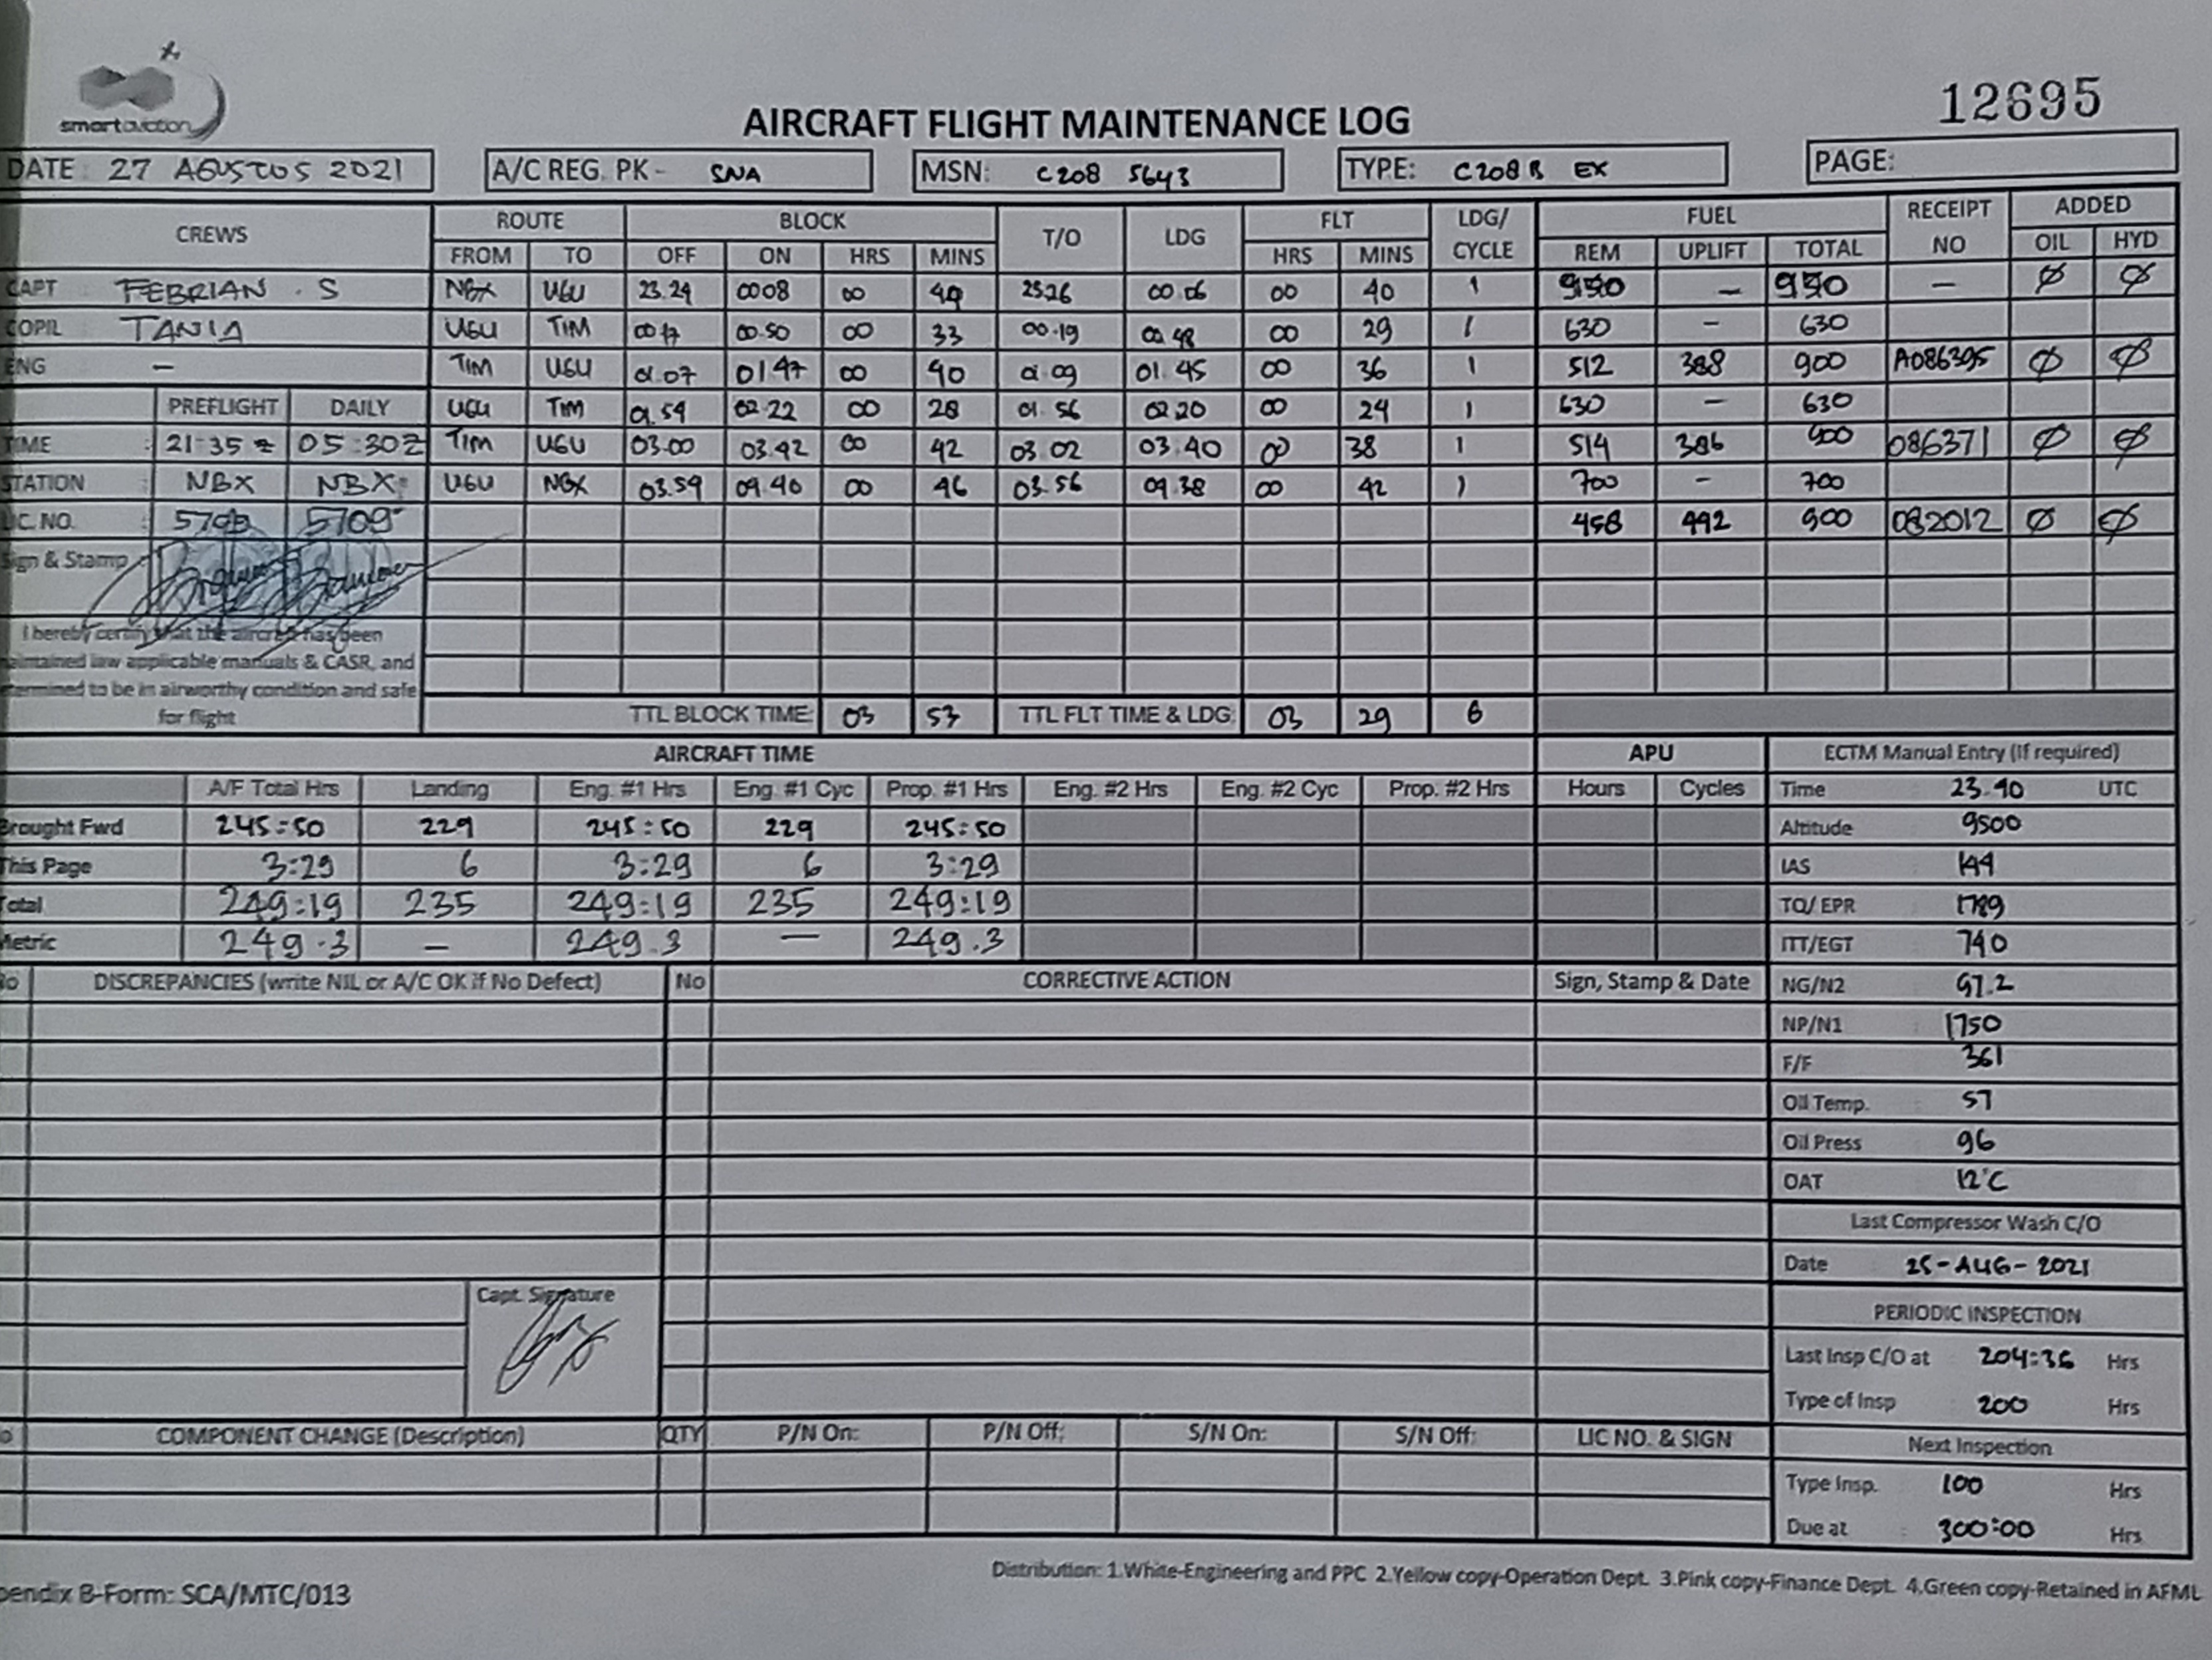 smartaviation
12695
AIRCRAFT FLIGHT MAINTENANCE LOG
DATE : 27 AGUSTUS 2021 A/C REG. PK - SNA MSN: C208 5643 TYPE: C208B EX PAGE:
CREWS ROUTE BLOCK T/O LDG FLT LDG/ CYCLE FUEL RECEIPT NO ADDED
FROM TO OFF ON HRS MINS HRS MINS REM UPLIFT TOTAL OIL HYD
CAPT FEBRIAN . S NBX UGU 23.24 0008 00 44 23.26 00.06 00 40 1 – – Ø Ø
COPIL TANIA UGU TIM 00 17 00.50 00 33 00.19 00.48 00 29 1 630 – 630
ENG – TIM UGU 01.07 01 47 00 40 01 09 01.45 00 36 1 512 388 900 A086395 Ø Ø
PREFLIGHT DAILY UGU TIM 01.54 02 22 00 28 01 56 02 20 00 24 1 630 – 630
TIME : 21:35 Z 05:30Z TIM UGU 03.00 03.42 00 42 03 02 03.40 00 38 1 514 386 900 086371 Ø Ø
STATION NBX NBX UGU NBX 03.54 04.40 00 46 03.56 04.38 00 42 1 700 – 700
LIC. NO. : 5709 458 442 900 082012 Ø Ø
Sign & Stamp
I hereby certify that the aircraft has been
maintained iaw applicable manuals & CASR, and
termined to be in airworthy condition and safe
for flight
TTL BLOCK TIME: 03 53 TTL FLT TIME & LDG: 03 29 6
AIRCRAFT TIME APU ECTM Manual Entry (If required)
A/F Total Hrs Landing Eng. #1 Hrs Eng. #1 Cyc Prop. #1 Hrs Eng. #2 Hrs Eng. #2 Cyc Prop. #2 Hrs Hours Cycles Time 23.40 UTC
Brought Fwd 245:50 229 245:50 229 245:50 Altitude 9500
This Page 3:29 6 3:29 6 3:29 IAS 144
Total 249:19 235 249:19 235 249:19 TQ/ EPR 1789
Metric 249.3 – 249.3 – 249.3 ITT/EGT 740
No DISCREPANCIES (write NIL or A/C OK if No Defect) No CORRECTIVE ACTION Sign, Stamp & Date NG/N2 97.2
NP/N1 1750
F/F 361
Oil Temp. 57
Oil Press 96
OAT 12°C
Last Compressor Wash C/O
Date 25-AUG-2021
Capt. Signature
PERIODIC INSPECTION
Last Insp C/O at 204:36 Hrs
Type of Insp 200 Hrs
COMPONENT CHANGE (Description) QTY P/N On: P/N Off: S/N On: S/N Off: LIC NO. & SIGN Next Inspection
Type Insp. 100 Hrs
Due at : 300:00 Hrs
Distribution: 1.White-Engineering and PPC 2.Yellow copy-Operation Dept. 3.Pink copy-Finance Dept. 4.Green copy-Retained in AFML
pendix B-Form: SCA/MTC/013